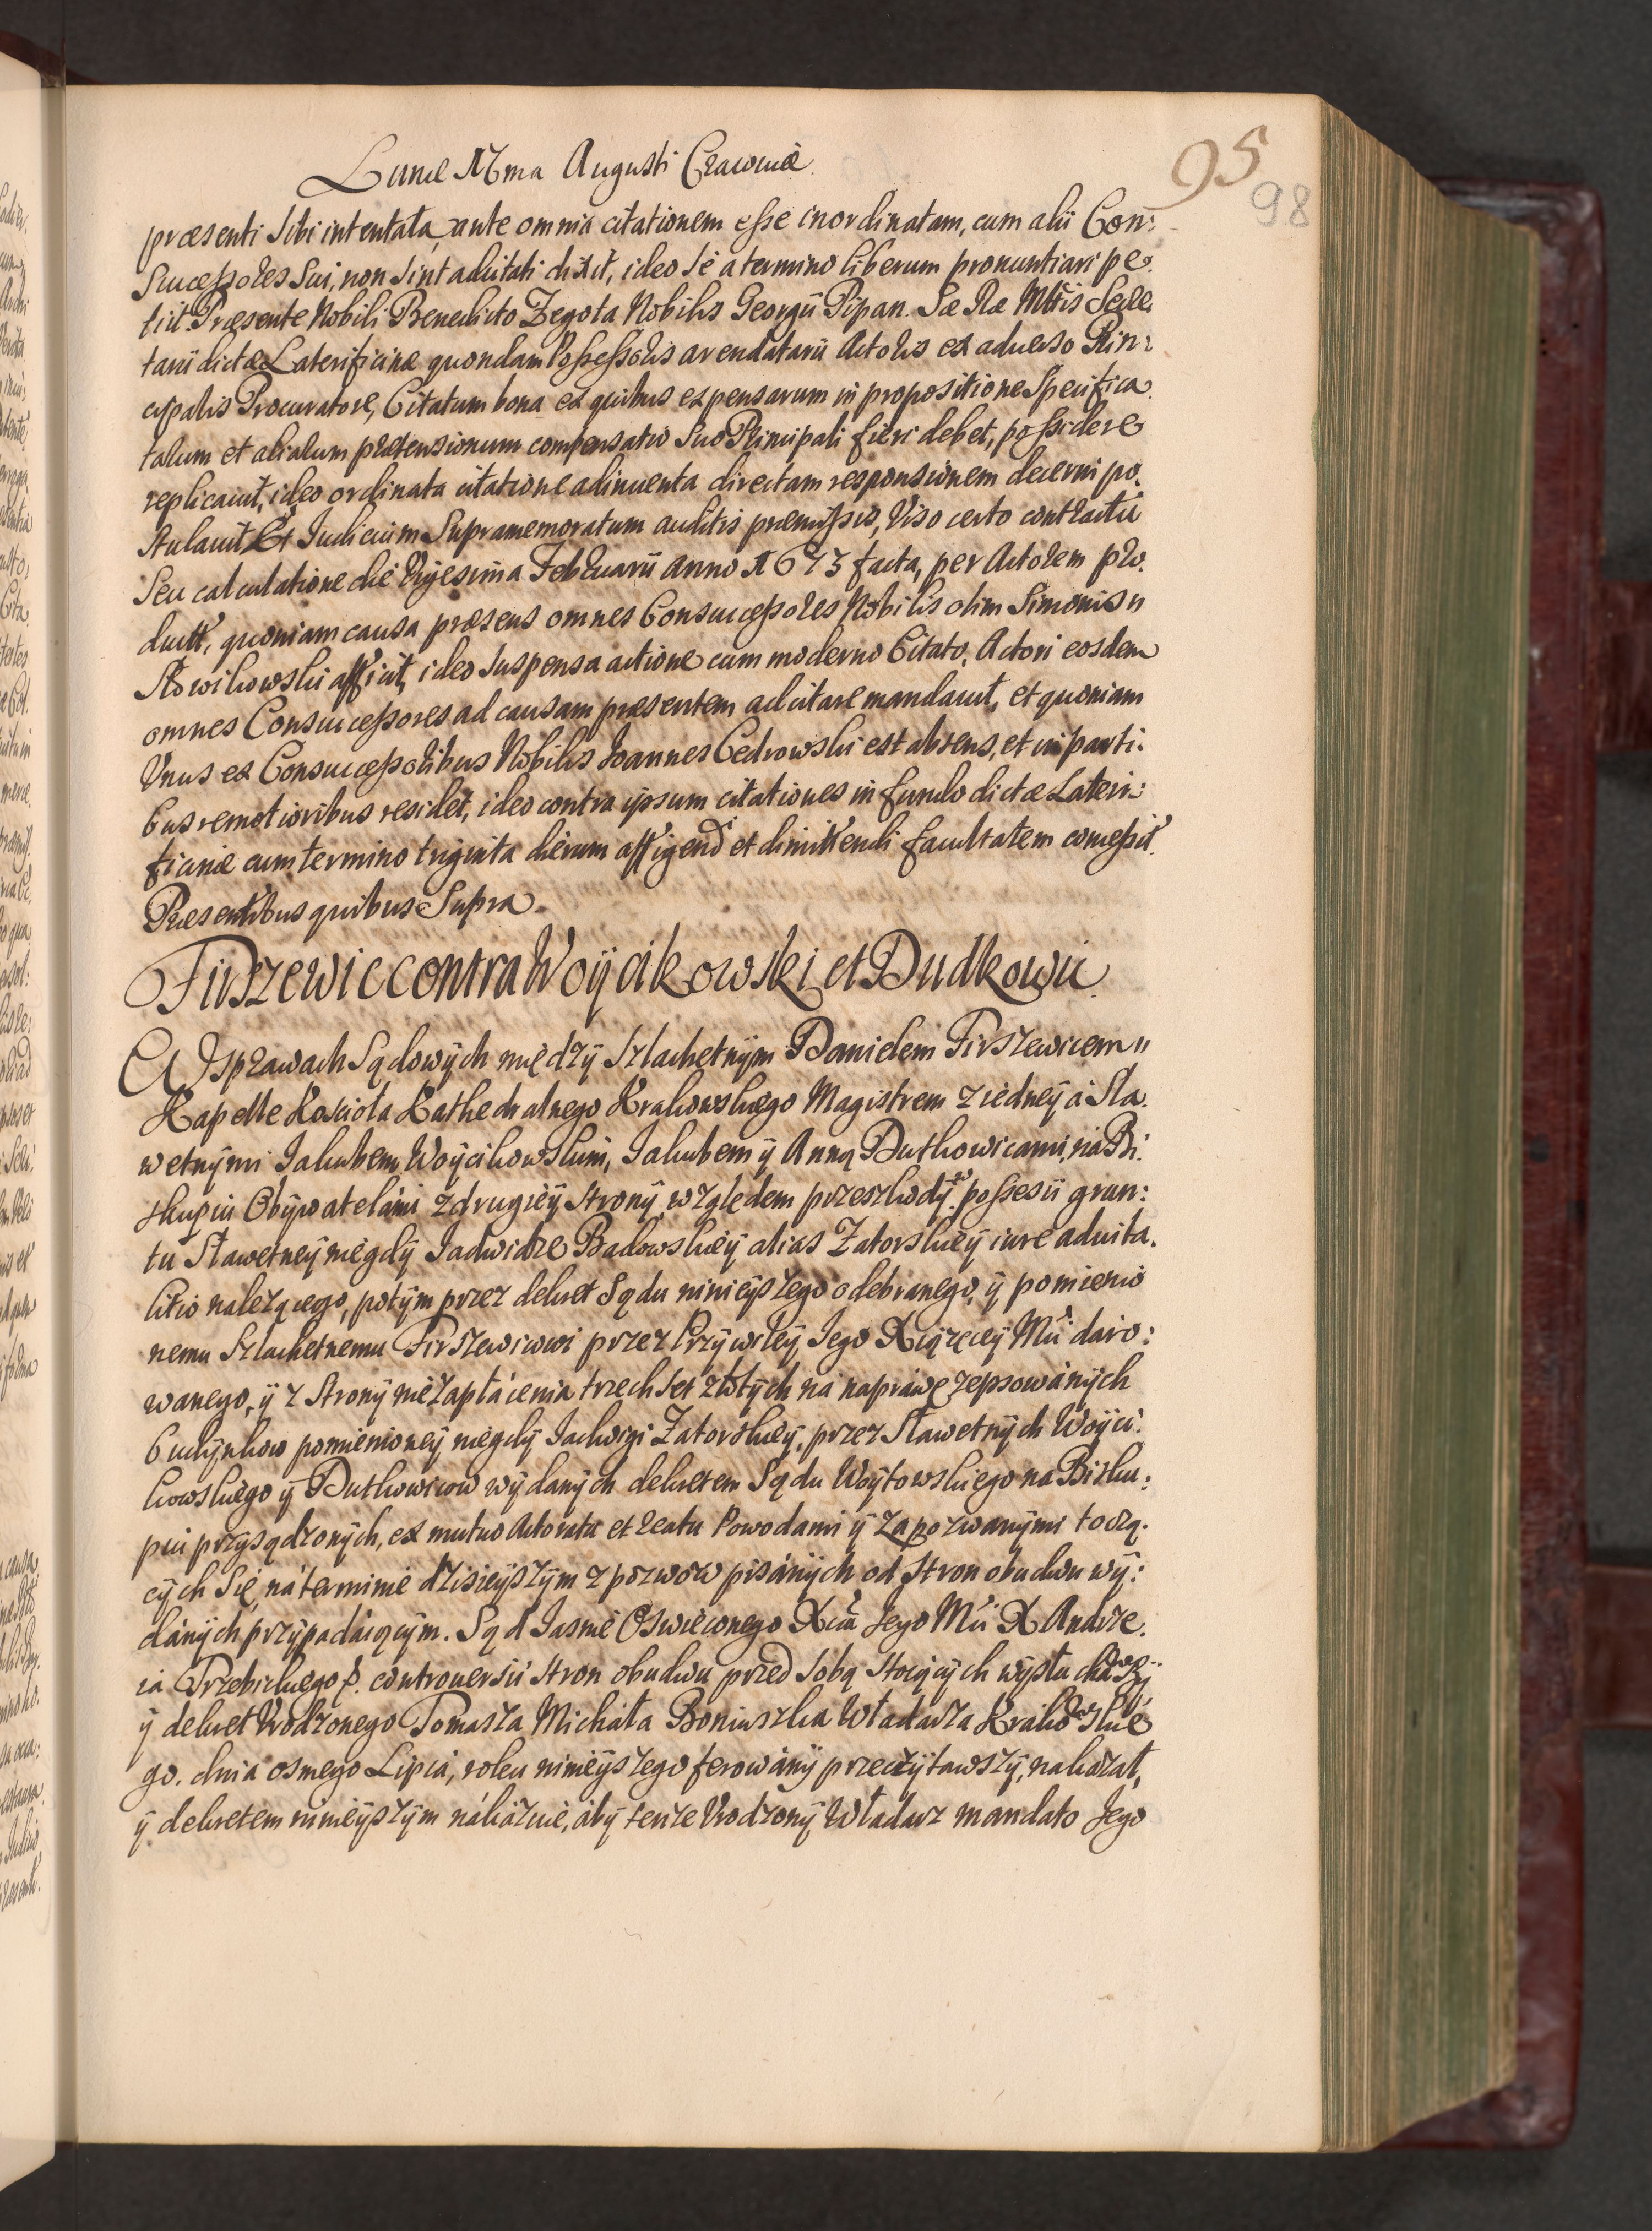 95
98
Lunæ 17ma Augusti Cracoviæ.
præsenti sibi intentata, ante omnia citationem esse inordinatam, cum alii Con:
Successores sui, non sint adcitati dixit, ideo se a termino liberum pronuntiari pe:
tiit. Præsente Nobili Benedicto Zegota Nobilis Georgii Pipan. Sæ Ræ Mttis Secre
tarii dictæ Laterificinæ quondam Possessoris arendatarii Actoris ex adverso Prin:
cipalis Procuratore, Citatum bona ex quibus expensarum in propositione Specifica.
tarum et aliarum prætensionum compensatio suo Principali fieri debet, possidere
replicavit, ideo ordinata citatione adinventa directam responsionem decerni po.
stulavit. Et Iudicium Supramemoratum auditis præmissis, Viso certo contractu
seu calculatione die Vigesima Februarii Anno 1673 facta, per Actorem pro.
ductt, quoniam causa præsens omnes Consuccessores Nobilis olim Simonis
Stowikowski afficit, ideo suspensa actione cum moderno Citato, Actori eosdem
omnes Consuccessores ad causam præsentem adcitare mandavit, et quoniam
Vnus ex Consuccessoribus Nobilis Ioannes Cedrowski est absens, et in parti:
bus remotioribus residet, ideo contra ipsum citationes in fundo dictæ Lateri:
ficinæ cum termino triginta dierum affigendi et dimittendi facultatem concessit.
Præsentibus quibus Supra.
Firszewic contra Woÿcikowski et Dudkowic.
W Sprawach Sądowÿch międzÿ Szlachetnÿm Danielem Firszewicem
Kapelle Kosciola Kathedralnego Krakowskiego Magistrem z iedneÿ a Sla.
wetnÿmi Iakubem Woÿcikowskim, Iakubem ÿ Anną Dutkowicami, na Bi.
skupiu Obÿwatelami z drugieÿ stronÿ, względem przeszkodÿ possesii grun:
tu Slawetneÿ niegdÿ Iadwidze Badowskieÿ alias Zatorskieÿ iure advita.
litio nalezącego, potÿm przez dekret Sądu ninieÿszego odebranego, ÿ pomienio
nemu Szlachetnemu Firszewicowi przez Przÿwileÿ Iego Xiązęceÿ Mci daro:
wanego, ÿ z stronÿ niezaplacenia trzech set zlotÿch na naprawę zepsowanÿch
budÿnkow pomienioneÿ niegdÿ Iadwigi Zatorskieÿ, przez Slawetnÿch Woÿci.
kowskiego ÿ Dutkowicow wÿdanÿch dekretem Sądu Woÿtowskiego na Bisku:
piu przÿsądzonÿch, ex mutuo Actoratu et reatu Powodami ÿ Zapozwanÿmi toczą.
cÿch się, na terminie dzisieÿszÿm z pozwow pisanÿch od stron obudwu wÿ:
danÿch przÿpadaiącÿm. Sąd Iasnie Oswieconego Xcia Jego Mci X Andrze.
ia Trzebickiego controversii stron obudwu przed sobą stoiącÿch wÿsluchawszÿ
ÿ dekret Vrodzonego Tomasza Michala Boniuszka Wladarza Krakowskie
go. dnia osmego Lipca, roku ninieÿszego ferowanÿ przeczÿtawszÿ, nakazal,
ÿ dekretem ninieÿszÿm nakazuie, abÿ tenze Vrodzonÿ Wladarz mandato Jego